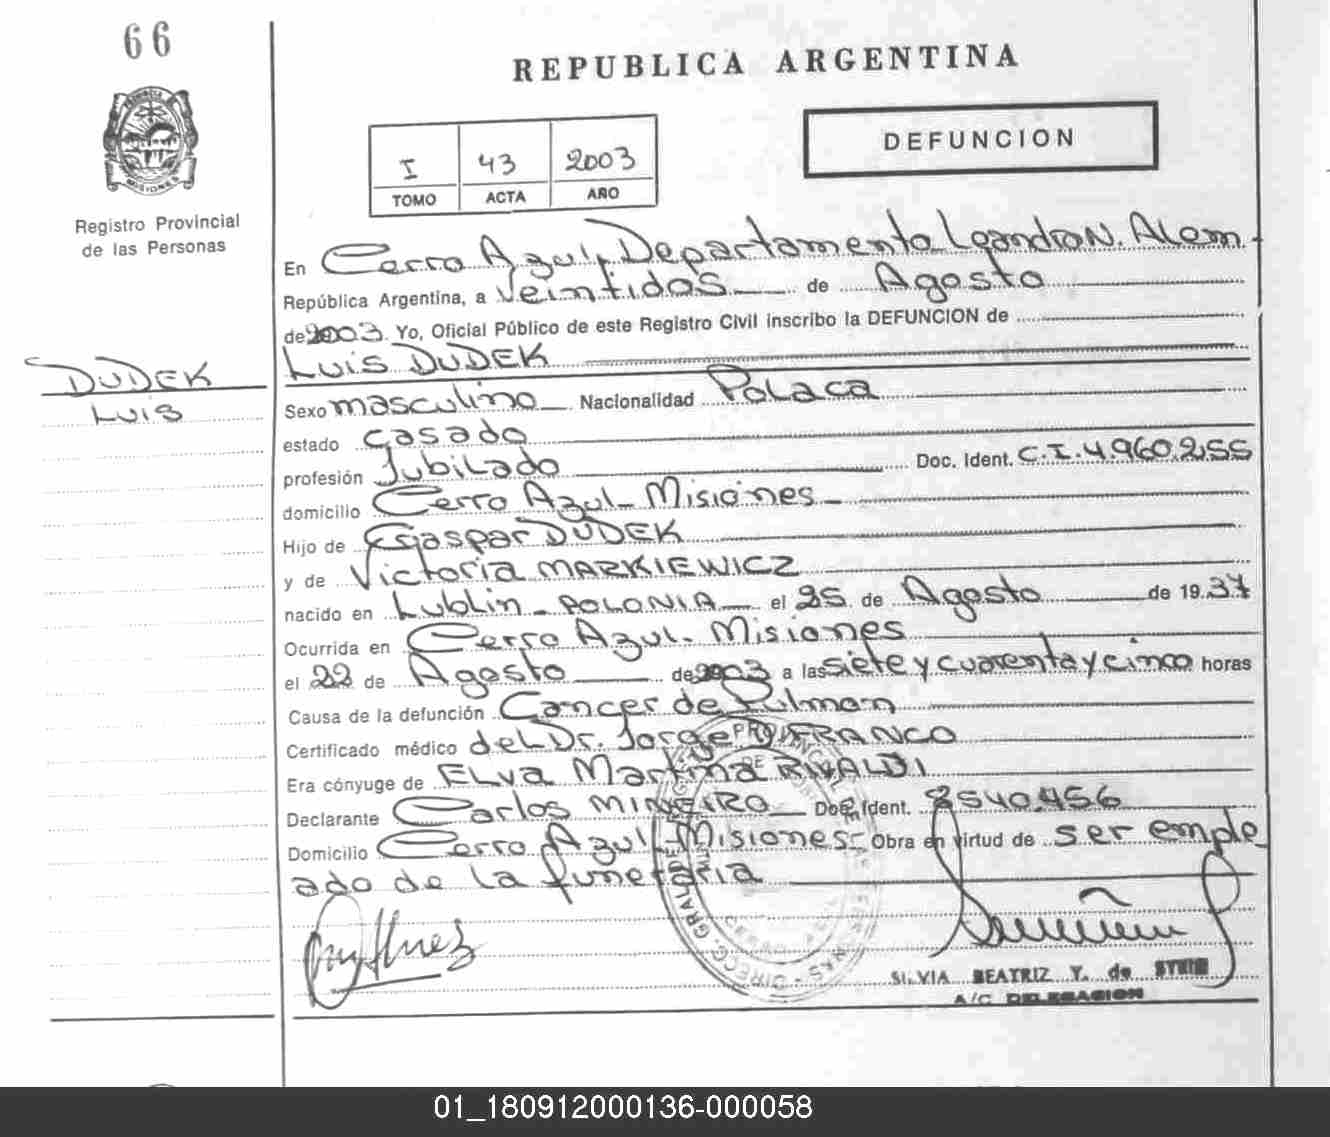 66
REPUBLICA ARGENTINA
DEFUNCION
I 43 2003
TOMO ACTA AÑO
PROVINCIA
MISIONES
Registro Provincial
de las Personas
En Cerro Azul, Departamento Leandro N. Alem.
República Argentina, a veintidos de Agosto
de 2003. Yo, Oficial Público de este Registro Civil inscribo la DEFUNCION de
Luis DUDEK
DUDEK
Luis
Sexo masculino Nacionalidad Polaca
estado casado
profesión Jubilado Doc. Ident. C.I. 4.960.255
domicilio Cerro Azul - Misiones -
Hijo de Gaspar DUDEK
y de Victoria MARKIEWICZ
nacido en Lublin - POLONIA el 25 de Agosto de 1937
Ocurrida en Cerro Azul - Misiones
el 22 de Agosto de 2003 a las siete y cuarenta y cinco horas
Causa de la defunción Cancer de Pulmon
Certificado médico del Dr. Jorge DIFRANCO
Era cónyuge de Elva Martina RIVALDI
Declarante Carlos MINEIRO Doc. Ident. 8540.456
Domicilio Cerro Azul - Misiones - Obra en virtud de ser emple
ado de la funeraria
SILVIA BEATRIZ Y. de
A/C DELEGACION
01_180912000136-000058